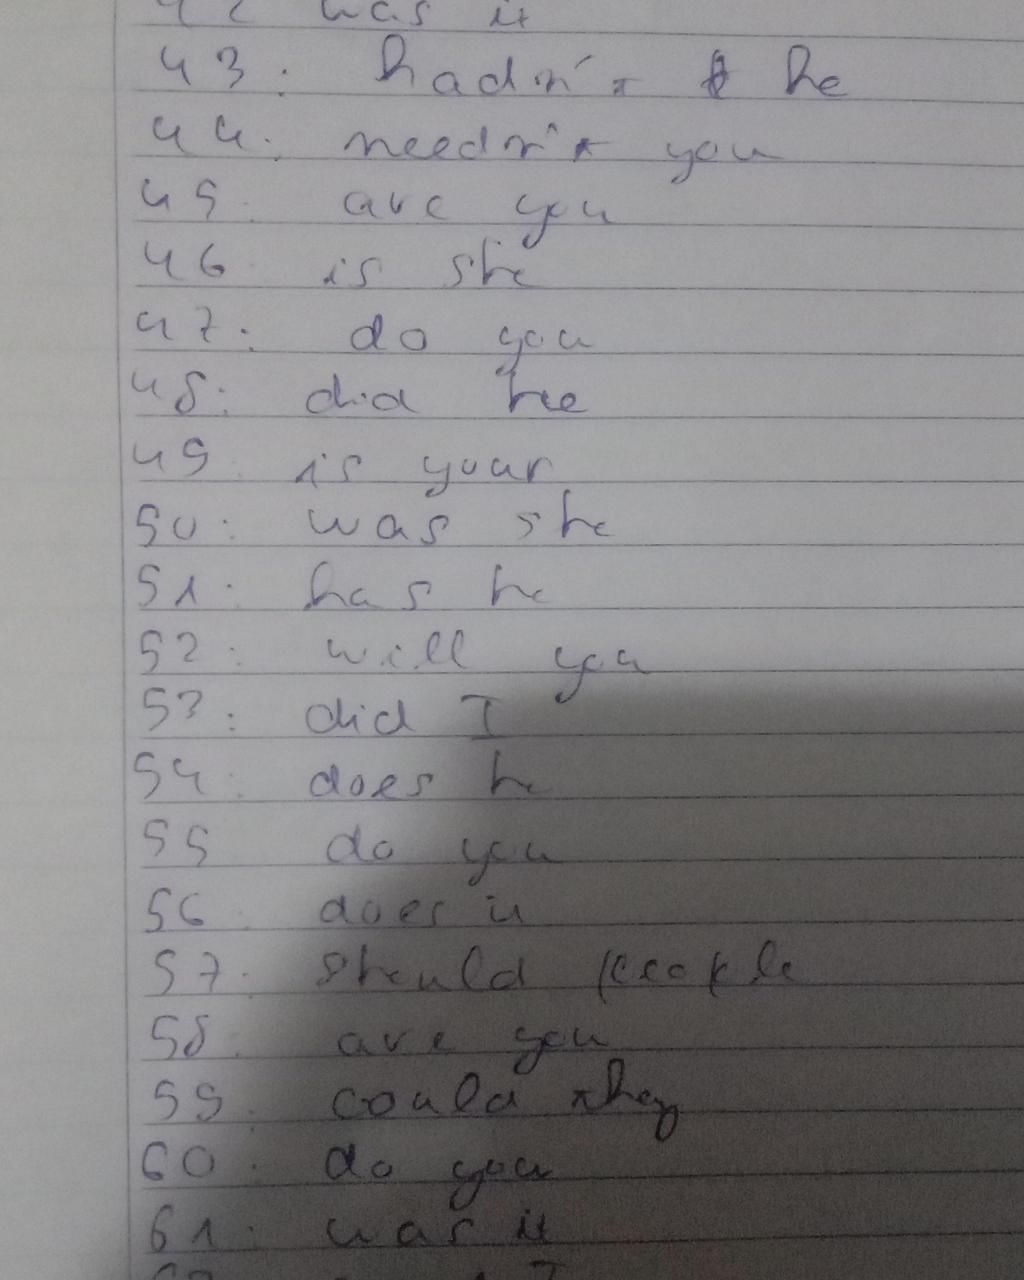 42 was it
43. hadn't he
44. needn't you
45. are you
46 is she
47. do you
48. did he
49. is your
50. was she
51. has he
52. will you
53. did I
54. does he
55 do you
56. does it
57. should people
58. are you
59. could they
60. do you
61. was it